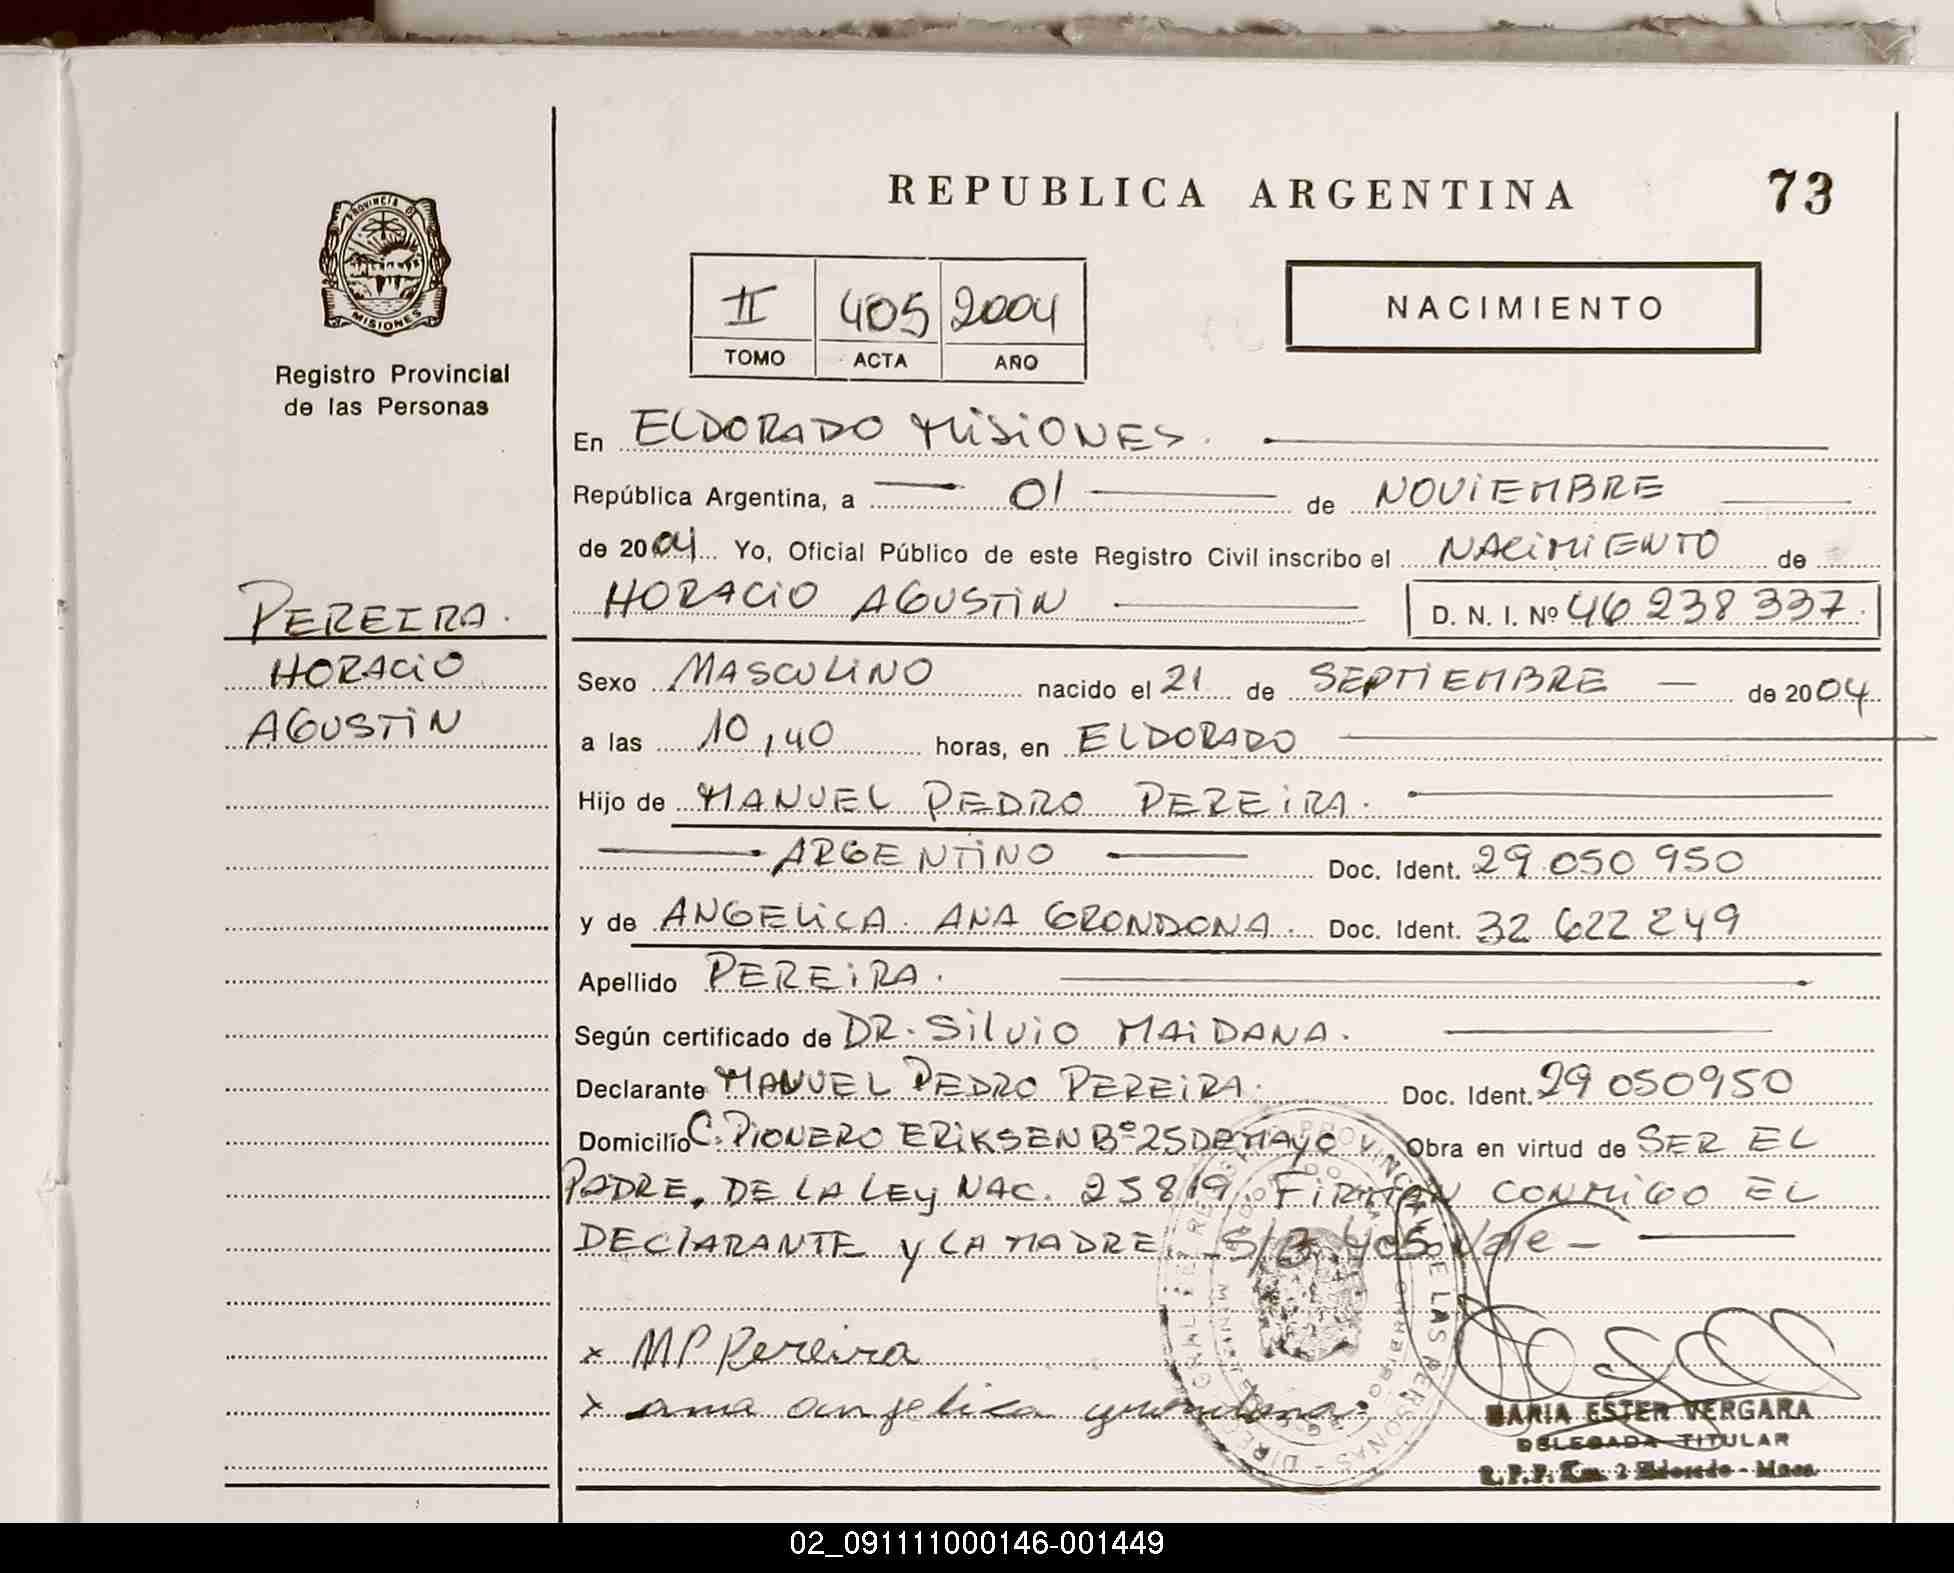 REPUBLICA ARGENTINA
73
PROVINCIA DE
MISIONES
Registro Provincial
de las Personas
II 405 2004
TOMO ACTA AÑO
NACIMIENTO
En ELDORADO MISIONES.
República Argentina, a 01 de NOVIEMBRE
de 2004 Yo, Oficial Público de este Registro Civil inscribo el NACIMIENTO de
HORACIO AGUSTIN D. N. I. Nº 46 238 337.
PEREIRA.
HORACIO
AGUSTIN
Sexo MASCULINO nacido el 21 de SEPTIEMBRE de 2004
a las 10,40 horas, en ELDORADO
Hijo de MANUEL PEDRO PEREIRA.
ARGENTINO Doc. Ident. 29.050 950
y de ANGELICA ANA GRONDONA. Doc. Ident. 32 622 249
Apellido PEREIRA.
Según certificado de DR. SILVIO MAIDANA.
Declarante MANUEL PEDRO PEREIRA. Doc. Ident. 29 050950
Domicilio C. PIONERO ERIKSEN Bº 25 DE MAYO Obra en virtud de SER EL
PADRE, DE LA LEY NAC. 25819 FIRMAN CONMIGO EL
DECLARANTE Y LA MADRE. S/B 405 Vale
x MP Pereira
x ana angelica grondona
MARIA ESTER VERGARA
DELEGADA TITULAR
R.P.P. Km. 2 Eldorado - Mnes.
02_091111000146-001449